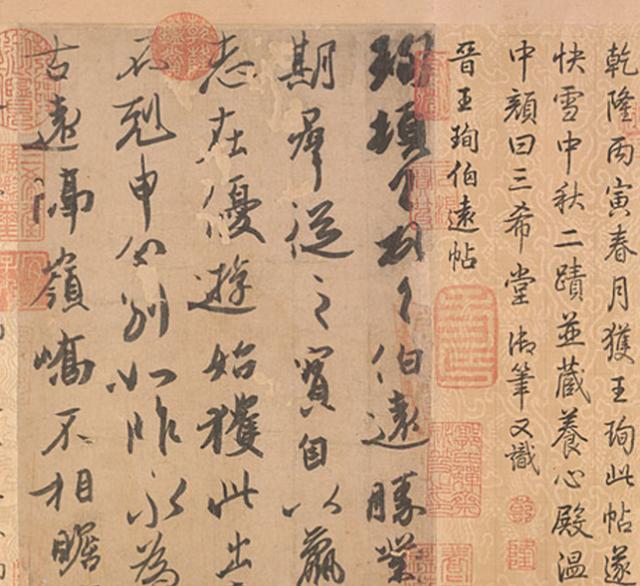 乾隆丙寅春月獲王珣此帖遂
快雪中秋二蹟並藏養心殿溫
中顏曰三希堂御筆又識
晉王珣伯遠帖
珣頓首頓首伯遠勝業
期羣從之寶自以羸
志在優遊始獲此出
不剋申分別如昨永為
古遠隔嶺嶠不相瞻